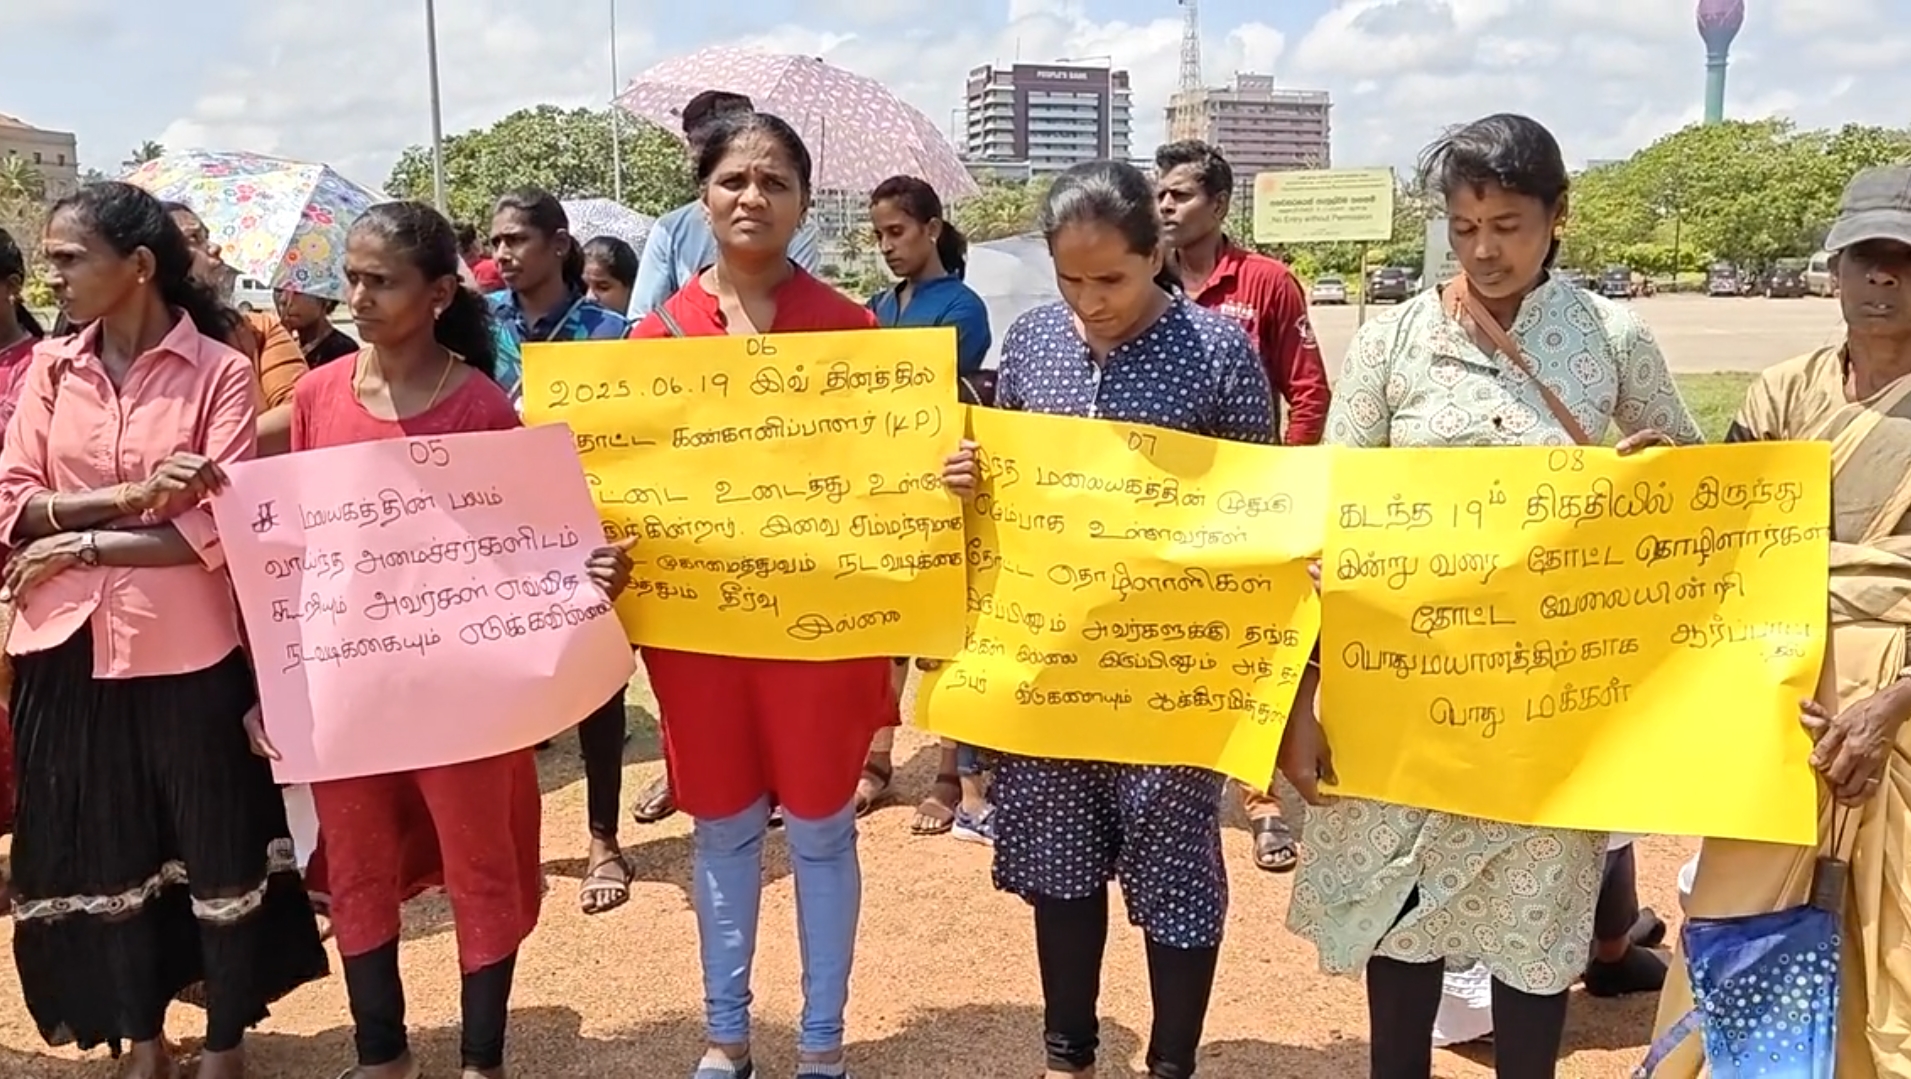 PEOPLE'S BANK
No Entry without Permission
05
மலையகத்தின் பலம்
வாய்ந்த அமைச்சர்களிடம்
கூறியும் அவர்கள் எவ்வித
நடவடிக்கையும் எடுக்கவில்லை
06
2025.06.19 இவ் தினத்தில்
தோட்ட கண்கானிப்பாளர் (KP)
உடைத்து உள்ளே
இவை சம்மந்தமாக
முகாமைத்துவம் நடவடிக்கை
தீர்வு
இல்லை
07
மலையகத்தின் முதுகு
உள்ளவர்கள்
தோட்ட தொழிளாளிகள்
இருப்பினும் அவர்களுக்கு தங்க
இல்லை இருப்பினும் அத்
நபர் வீடுகளையும்
08
கடந்த 19ம் திகதியில் இருந்து
இன்று வரை தோட்ட தொழிளார்கள்
தோட்ட வேலையின்றி
பொது மயானத்திற்காக
பொது மக்கள்